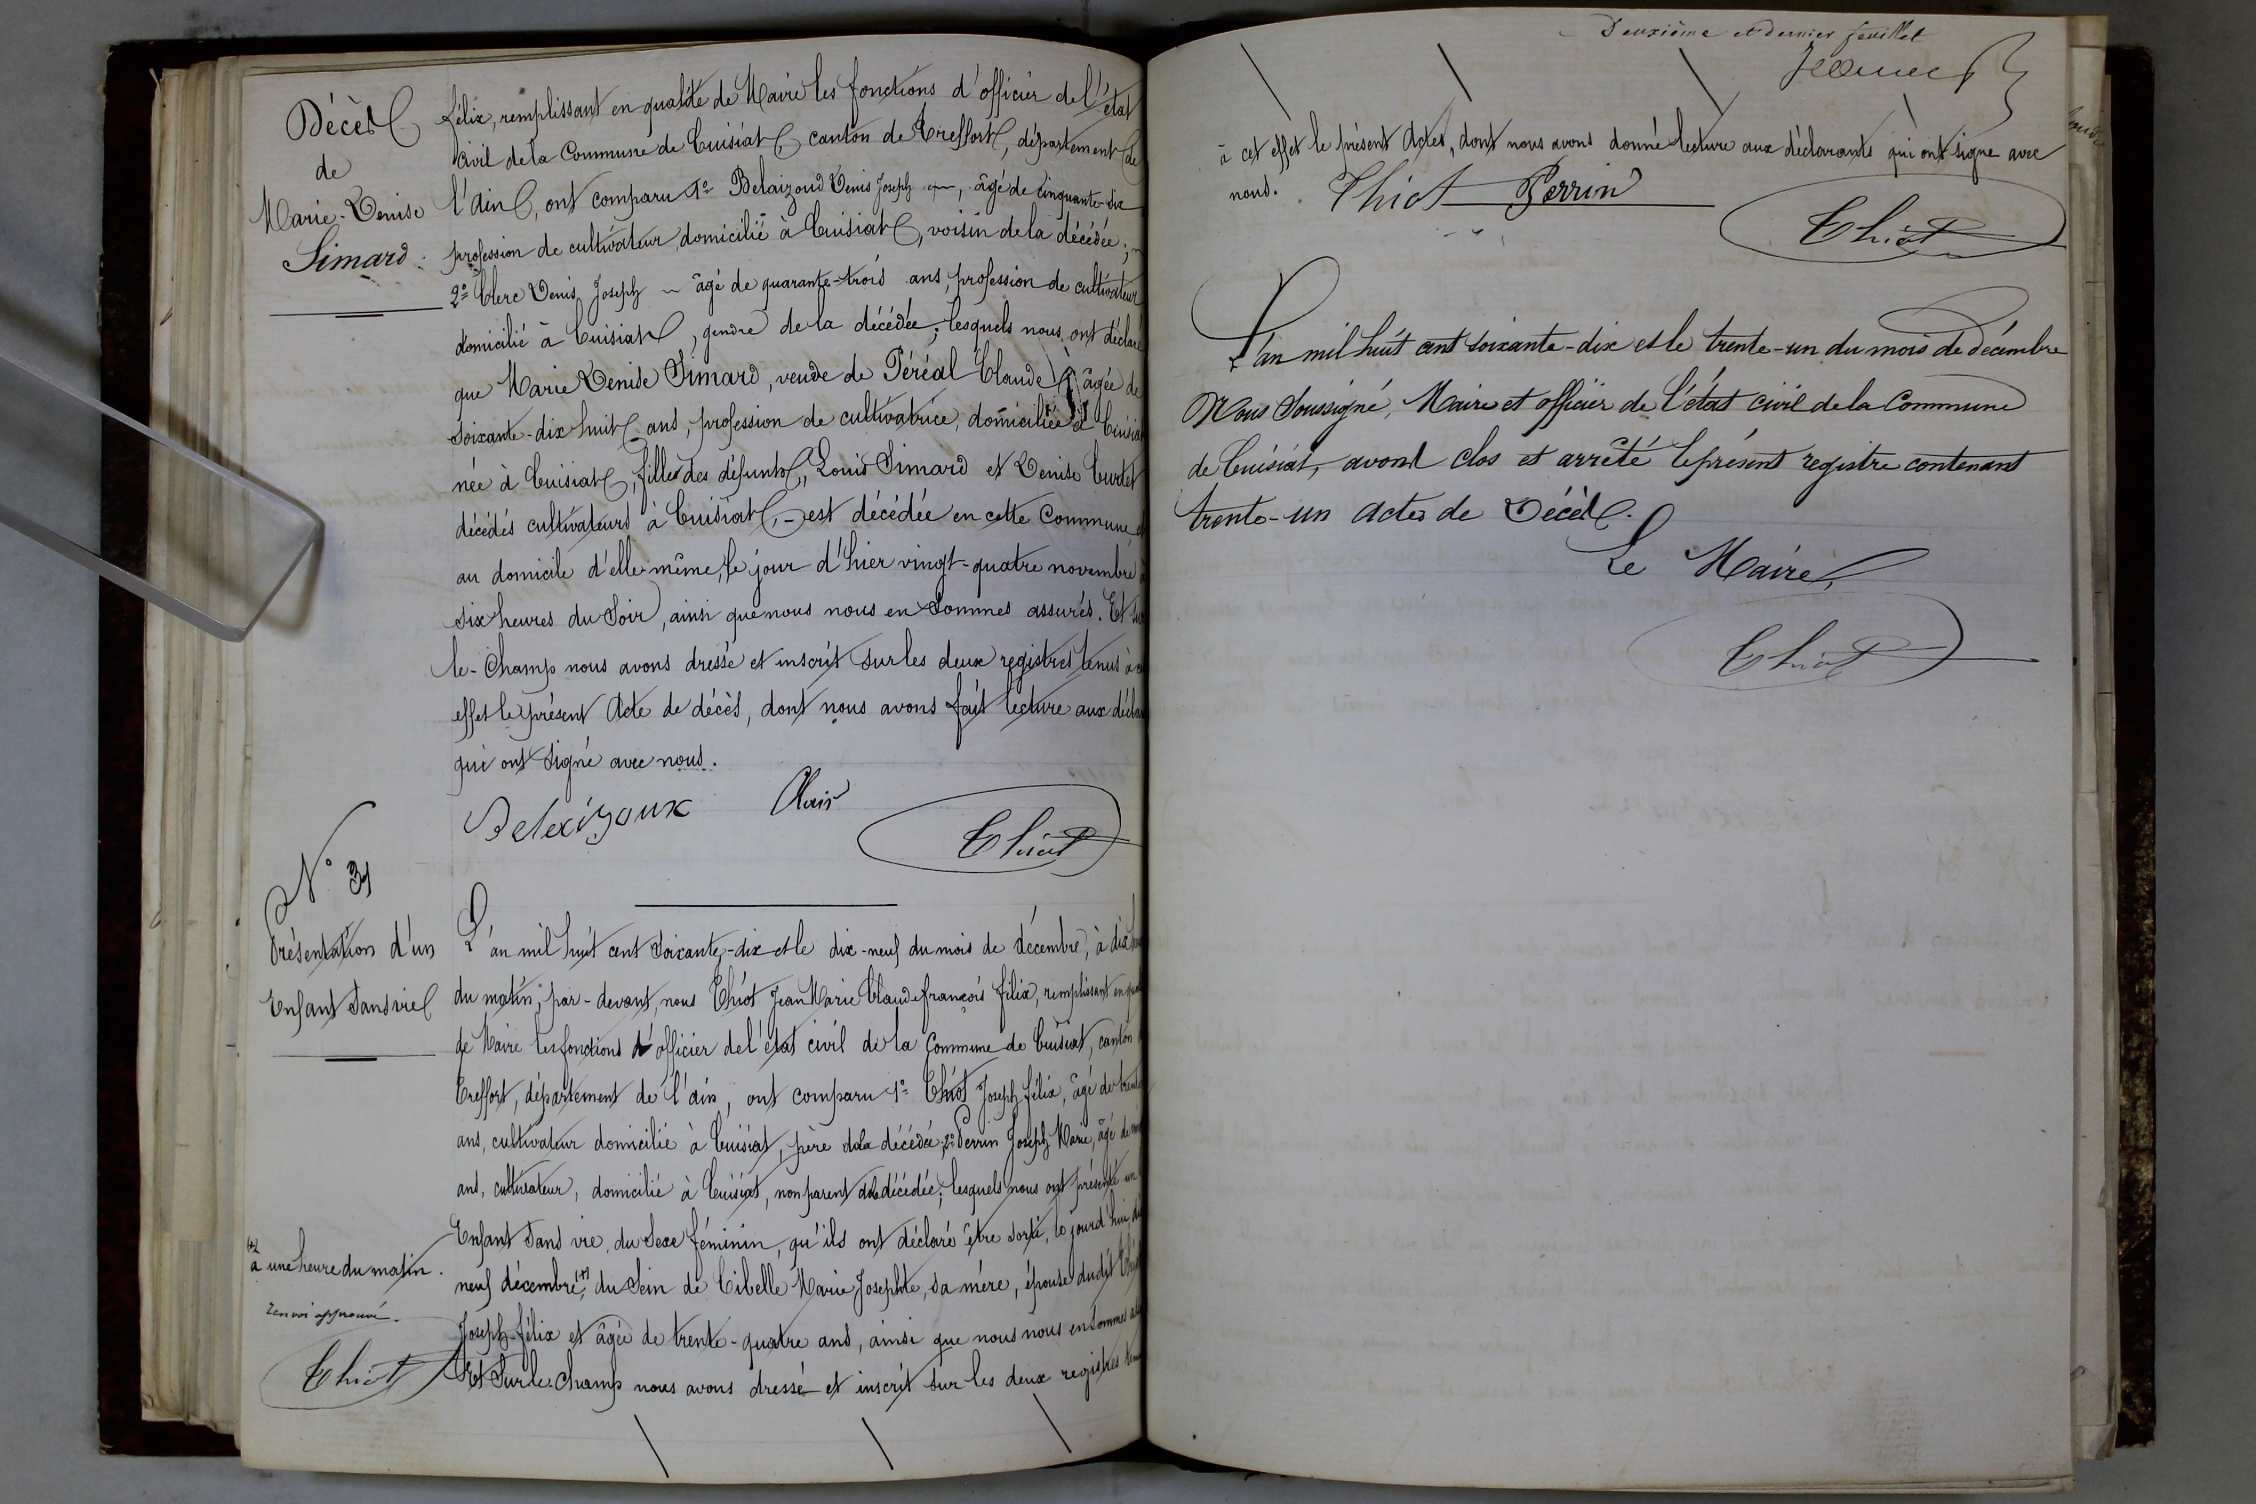 Décès
de
Marie-Denise
Simard
félix, remplissant en qualité de Maire les fonctions d'officier de l'état
civil de la Commune de Cuisiat, canton de Treffort, département de
l'ain, ont comparu 1° Belaizoud Denis Joseph, âgé de cinquante-six
profession de cultivateur, domicilié à Cuisiat, voisin de la décédée;
2° Clerc Denis Joseph âgé de quarante-trois ans, profession de cultivateur
domicilié à Cuisiat, gendre de la décédée; lesquels nous ont déclaré
que Marie Denise Simard, veuve de Péréal Claude âgée de
soixante-dix huit ans, profession de cultivatrice, domiciliée à Cuisiat
née à Cuisiat, fille des défunts, Louis Simard et Denise Curtet
décédés cultivateurs à Cuisiat, est décédée en cette Commune et
au domicile d'elle-même, le jour d'hier vingt-quatre novembre à
six heures du Soir, ainsi que nous nous en sommes assurés. Et sur
le-Champ nous avons dressé et inscrit sur les deux registres tenus à
effet le présent Acte de décès, dont nous avons fait lecture aux
qui ont signé avec nous.
Thiot
N° 31
Présentation d'un
Enfant Sans vie
L'an mil huit cent soixante-dix et le dix-neuf du mois de décembre, à dix
du matin; par-devant, nous Thiot Jean Marie Claude françois félix, remplissant en
de Maire les fonctions d'officier de l'état civil de la Commune de Cuisiat, canton
Treffort, département de l'ain, ont comparu 1° Thiot Joseph félix, âgé de
ans, cultivateur domicilié à Cuisiat, père de la décédée; 2° Perrin Joseph Marie, âgé de
ans, cultivateur, domicilié à Cuisiat, non parent de la décédée; lesquels nous ont présenté un
Enfant sans vie, du Sexe féminin, qu'ils ont déclaré être sorti, le jourd'hui,
neuf décembre, (+) du Sein de Cibelle Marie Josephte, sa mère, épouse du dit Thiot
Joseph-félix et âgée de trente-quatre ans, ainsi que nous nous en sommes
Et Sur le Champ nous avons dressé et inscrit sur les deux registres
(+)
à une heure du matin.
Renvoi approuvé.
Thiot
Deuxième et dernier feuillet
à cet effet le présent Actes, dont nous avons donné lecture aux déclarants qui ont signé avec
nous. Thiot Perrin
Thiot
L'an mil huit cent soixante-dix et le trente-un du mois de décembre
Nous Soussigné, Maire et officier de l'état civil de la Commune
de Cuisiat, avons clos et arrêté le présent registre contenant
trente-un actes de Décès.
Le Maire,
Thiot